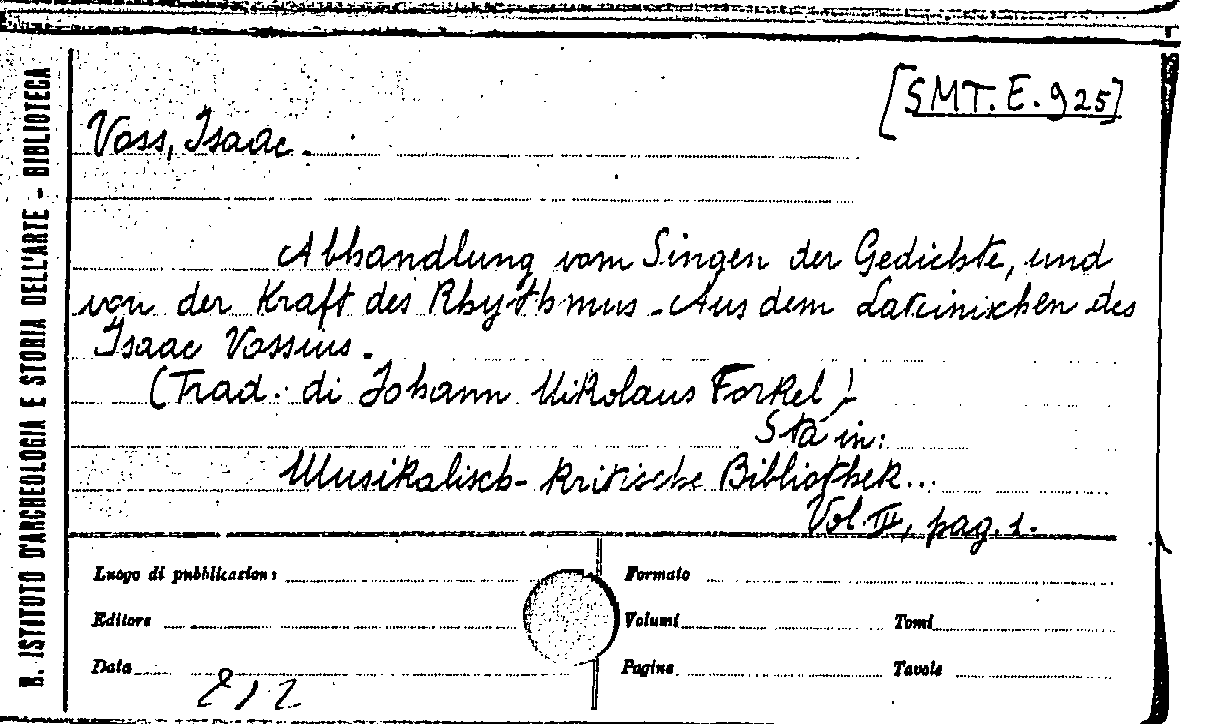 R. ISTITUTO D'ARCHEOLOGIA E STORIA DELL'ARTE - BIBLIOTECA
[SMT. E. 925]
Voss, Isaac.
Abhandlung vom Singen der Gedichte, und
von der Kraft des Rhythmus. Aus dem Lateinischen des
Isaac Vossius.
(Trad. di Johann Nikolaus Forkel)
Sta in:
Musikalisch-kritische Bibliothek...
Vol. III, pag. 1.
Luogo di pubblicazione
Formato
Editore
Volumi
Tomi
Data
Pagine
Tavole